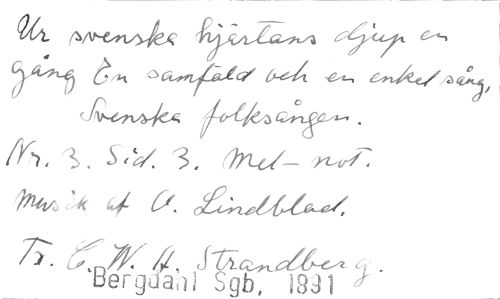 Ur svenska hjärtans djup en
gång En samfäld och en enkel sång,
Svenska folksången.
Nr. 3. Sid. 3. Mel-not.
Musik af O. Lindblad.
Tr. C. W. A. Strandberg.
Bergdahl Sgb, 1891